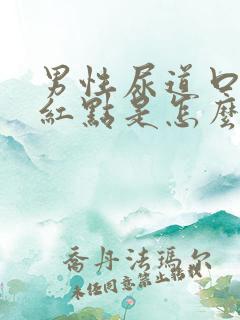 男性尿道口
紅點是怎麼
喬丹法瑪尔
未经同意禁止转载